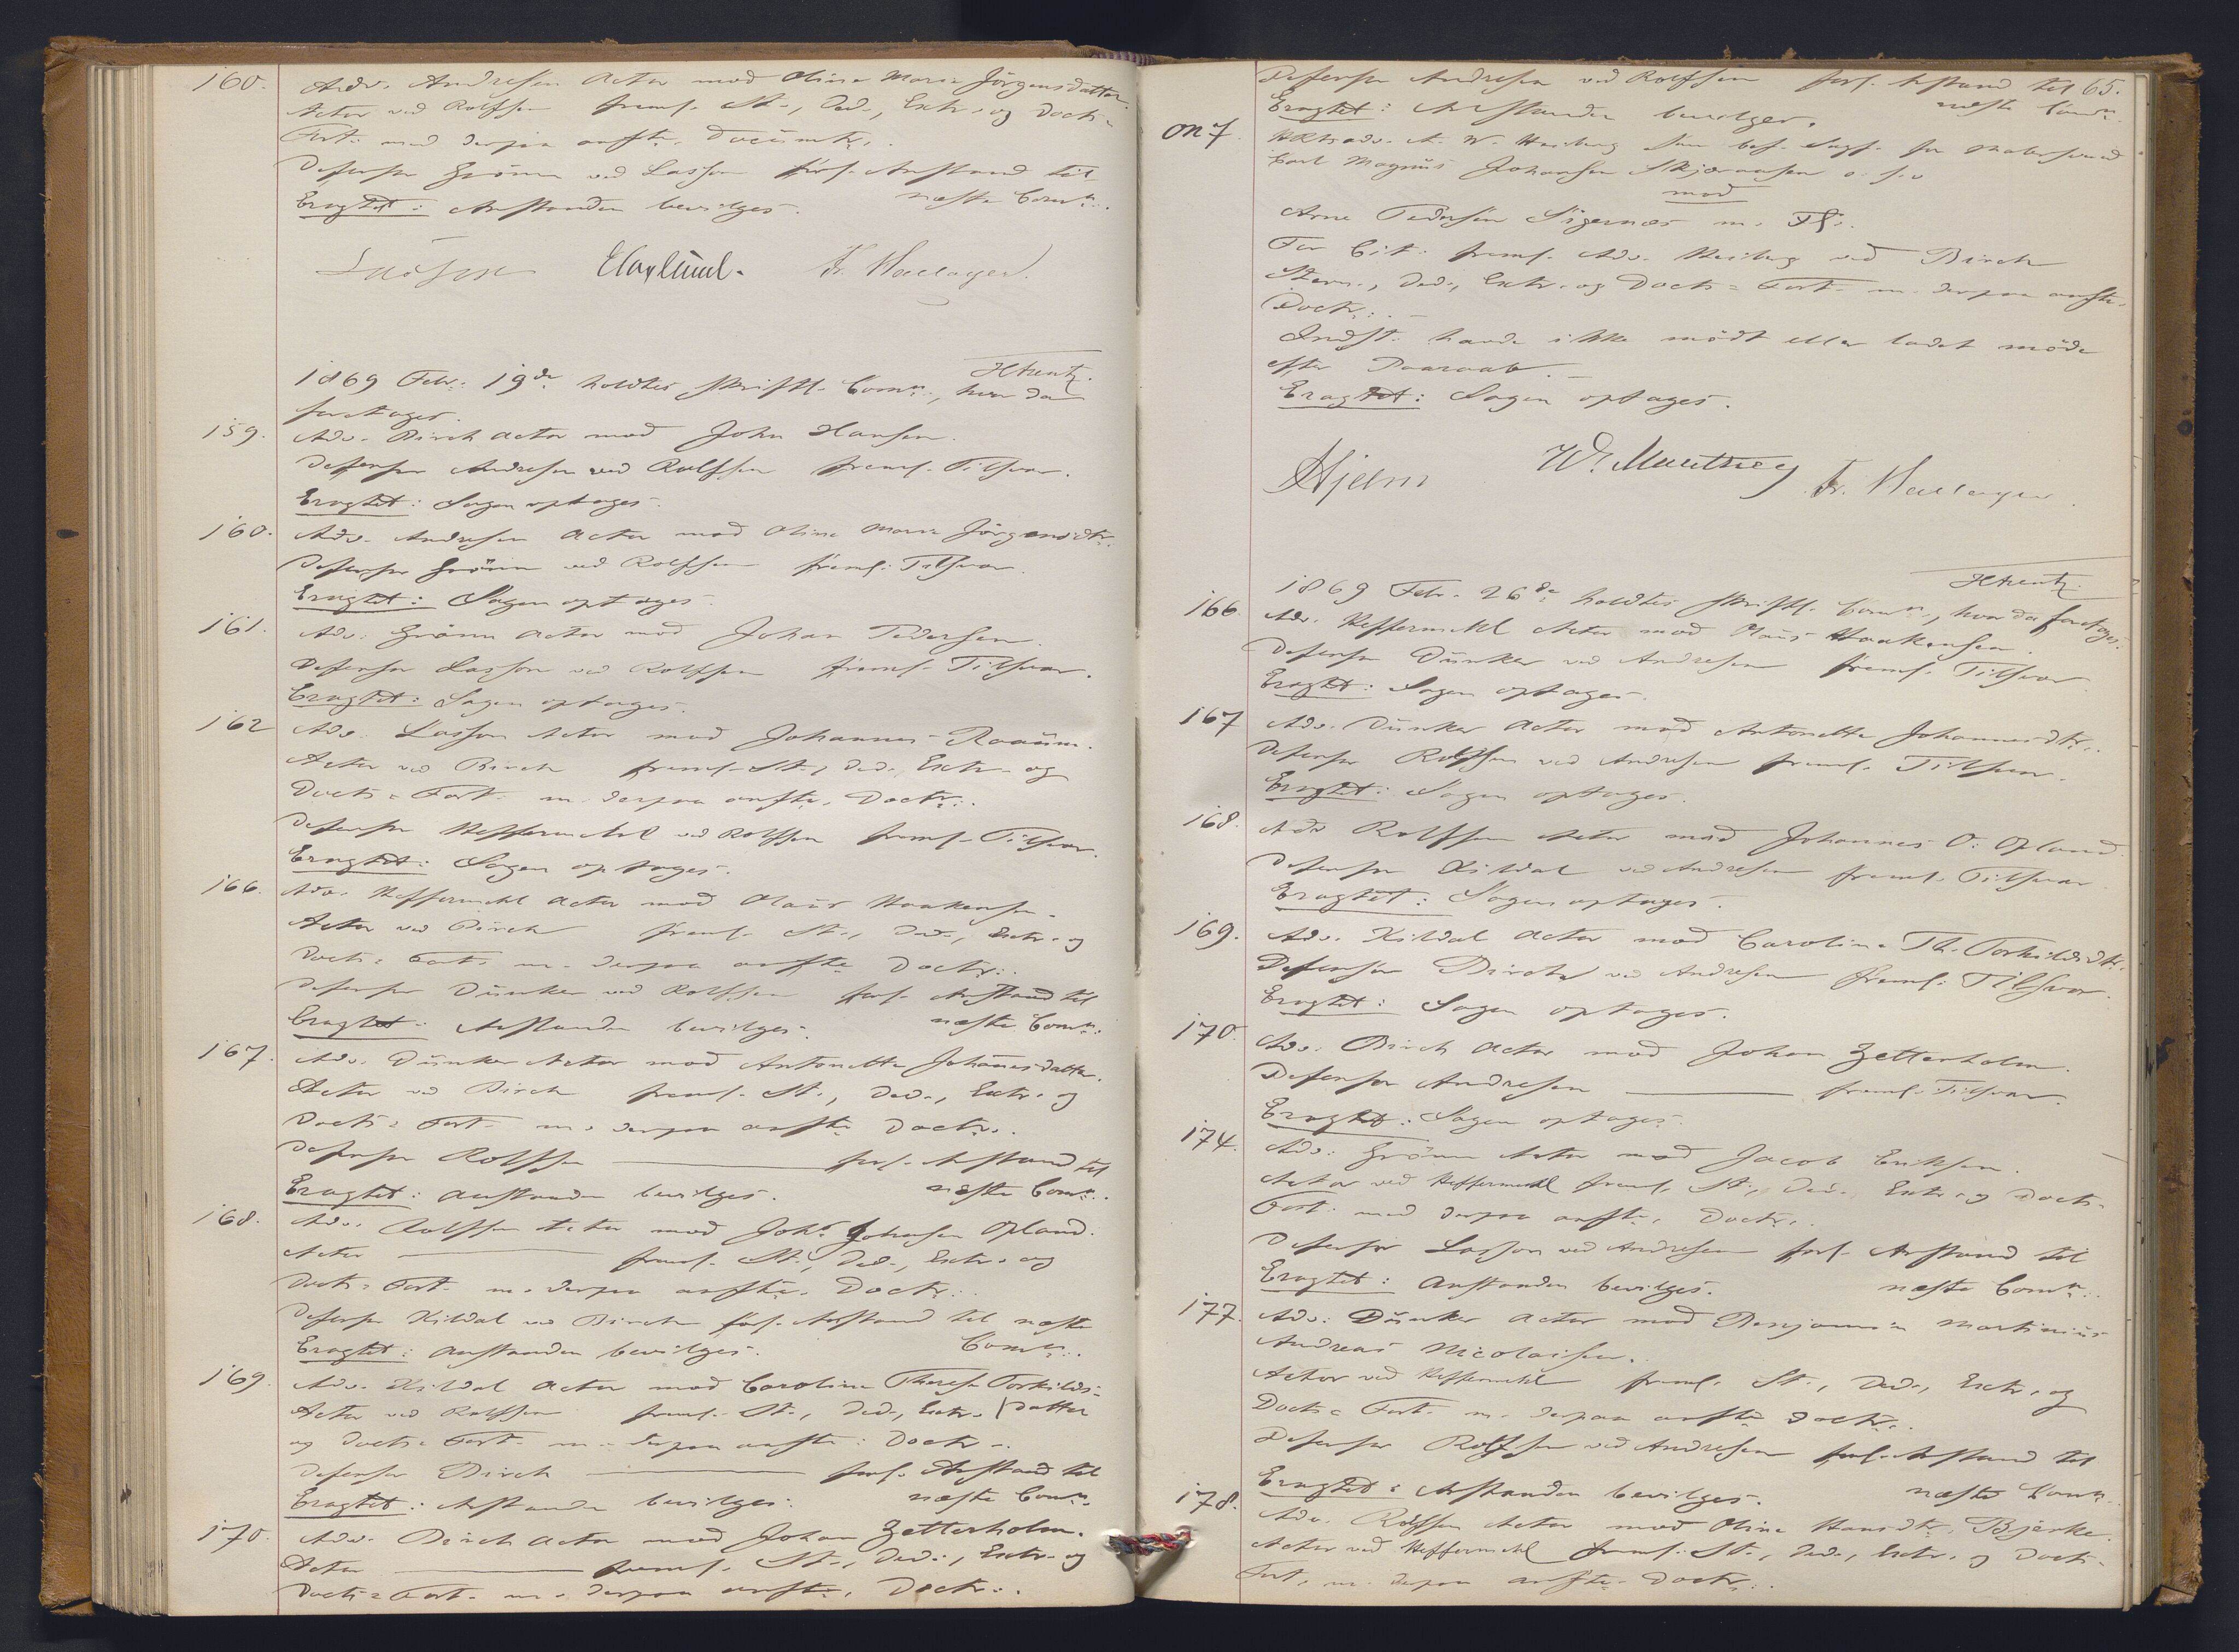 160. Adv. Andresen Actor mod Oline Marie Jörgensdatter.
Actor ved Rolfsen freml. St., Ded., Extr. og Docts=
Fort. med derpaa anfte. Documtr.
Defensor Grönn ved Lasson forl. Anstand til
Eragtet: Anstanden bevilges. næste Comn.
Fr. Hallager.
1869 Febr. 19de holdtes skriftl. Comn., hvor da
foretoges.
159. Adv. Birch Actor mod John Hansen.
Defensor Andresen ved Rolfsen freml. Tilsvar.
Eragtet: Sagen optages.
160. Adv. Andresen Actor mod Oline Marie Jörgensdtr.
Defensor Grönn ved Rolfsen freml. Tilsvar.
Eragtet: Sagen optages.
161. Adv. Grönn Actor mod Johan Pedersen.
Defensor Lasson ved Rolfsen freml. Tilsvar.
Eragtet: Sagen optages.
162 Adv. Lasson Actor mod Johannes Raaum.
Actor ved Birch freml. St., Ded., Extr. og
Docts= Fort. m. derpaa anfte. Doctr.
Defensor Heffermehl ved Rolfsen freml. Tilsvar.
Eragtet: Sagen optages.
166. Adv. Heffermehl Actor mod Olaus Haakensen.
Actor ved Birch freml. St., Ded., Extr. og
Docts= Fort. m. derpaa anfte Doctr.
Defensor Dunker ved Rolfsen forl. Anstand til
Eragtet: Anstanden bevilges. næste Comn.
167. Adv. Dunker Actor mod Antonette Johannesdatter.
Actor ved Birch freml. St., Ded., Extr. og
Docts= Fort. m. derpaa anfte Doctr.
Defensor Rolfsen — forl. Anstand til
Eragtet: Anstanden bevilges. næste Comn.
168. Adv. Rolfsen Actor mod Johs Johnsen Opland.
Actor — freml. St., Ded., Extr. og
Docts= Fort. m. derpaa anfte. Doctr.
Defensor Kildal ved Birch forl. Anstand til næste
Eragtet: Anstanden bevilges. Comn.
169. Adv. Kildal Actor mod Caroline Therese Torkilds=
Actor ved Rolfsen freml. St., Ded., Extr. (datter
og Docts= Fort. m. derpaa anfte. Doctr.
Defensor Birch — forl. Anstand til
Eragtet: Anstanden bevilges. næste Comn.
170. Adv. Birch Actor mod Johan Zetterholm.
Actor — freml. St., Ded., Extr. og
Docts= Fort. m. derpaa anfte. Doctr.
Defensor Andresen ved Rolfsen forl. Anstand til 65.
Eragtet: Anstanden bevilges. næste Comn.
HRtsadv. A. W. Heiberg
Carl Magnus Johansen Skjevensen o. s. v
mod
Arne Pedersen Sigernæs m. Fl.
For Cit. freml. Adv. Heiberg ved Birch
Stevn., Ded., Extr. og Docts= Fort. m. derpaa anfte.
Doctr.
Indst. havde ikke mödt eller ladet möde
efter Paaraab.
Eragtet: Sagen optages.
Hjelm Fr. Hallager
1869 Febr. 26de holdtes skriftl. Comn., hvor da foretoges.
166. Adv. Heffermehl Actor mod Olaus Haakensen.
Defensor Dunker ved Andresen freml. Tilsvar.
Eragtet: Sagen optages.
167 Adv. Dunker Actor mod Antonette Johannesdtr.
Defensor Rolfsen ved Andresen freml. Tilsvar.
Eragtet: Sagen optages.
168. Adv Rolfsen Actor mod Johannes O. Opland.
Defensor Kildal ved Andresen freml. Tilsvar
Eragtet: Sagen optages.
169. Adv. Kildal Actor mod Caroline Th. Torkildsdtr.
Defensor Birch ved Andresen freml. Tilsvar.
Eragtet: Sagen optages.
170. Adv. Birch Actor mod Johan Zetterholm.
Defensor Andresen — freml. Tilsvar.
Eragtet: Sagen optages.
174. Adv. Grönn Actor mod Jacob Eriksen.
Actor ved Heffermehl freml. St., Ded., Extr. og Docts=
Fort. med derpaa anfte. Doctr.
Defensor Lasson ved Andresen forl. Anstand til
Eragtet: Anstanden bevilges. næste Comn.
177. Adv. Dunker Actor mod Benjamin Martinius
Andreas Nicolaisen.
Actor ved Heffermehl freml. St., Ded., Extr. og
Docts= Fort. m. derpaa anfte Doctr.
Defensor Rolfsen ved Andresen forl. Anstand til
Eragtet: Anstanden bevilges. næste Comn.
178. Adv. Rolfsen Actor mod Oline Hansdtr. Bjerke.
Actor ved Heffermehl freml. St., Ded., Extr. og Docts=
Fort. m. derpaa anfte. Doctr.